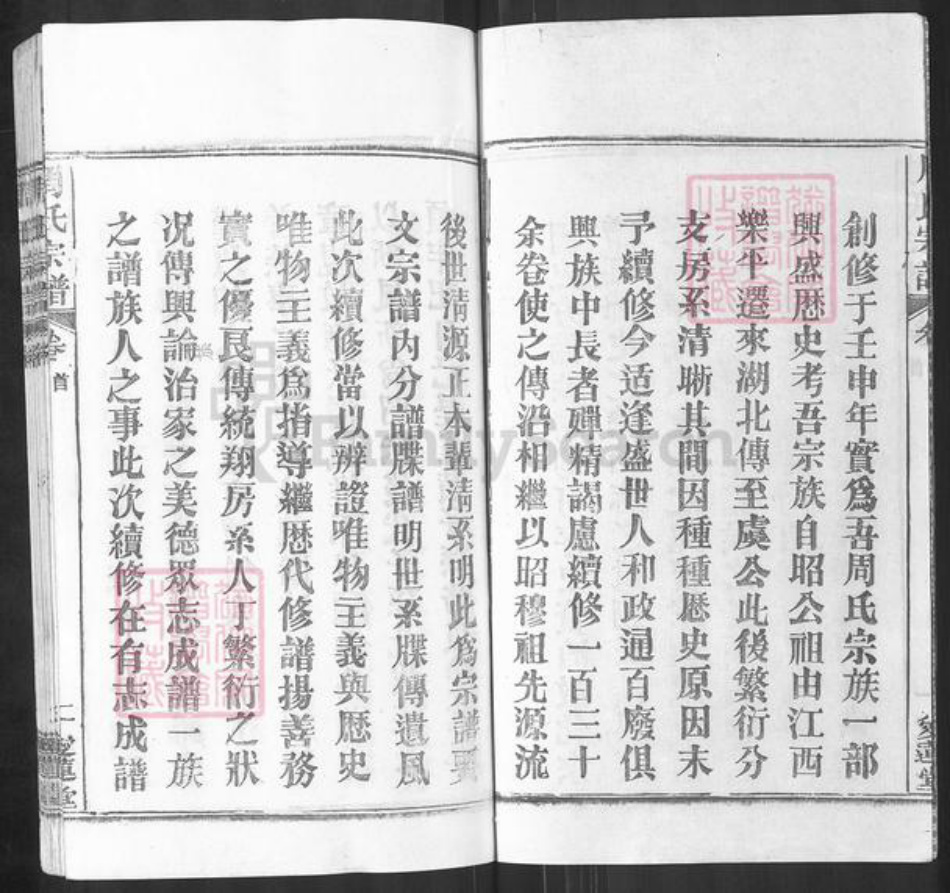 創修于壬申年實爲吾周氏宗族一部
興盛歷史考吾宗族自昭公祖由江西
樂平遷來湖北傳至虞公此後繁衍分
支房系清晰其間因種種歷史原因未
予續修今适逢盛世人和政通百廢俱
興族中長者殫精謁慮續修一百三十
余卷使之傳沿相繼以昭穆祖先源流
後世清源正本輩清系明此爲宗譜要
文宗譜内分譜牒譜明世系牒傳遺風
此次續修當以辨證唯物主義與歷史
唯物主義爲指導繼歷代修譜揚善務
實之優良傳統翔房系人丁繁衍之狀
況傳興論治家之美德眾志成譜一族
之譜族人之事此次續修在有志成譜
周氏宗譜
卷首
二
愛蓮堂